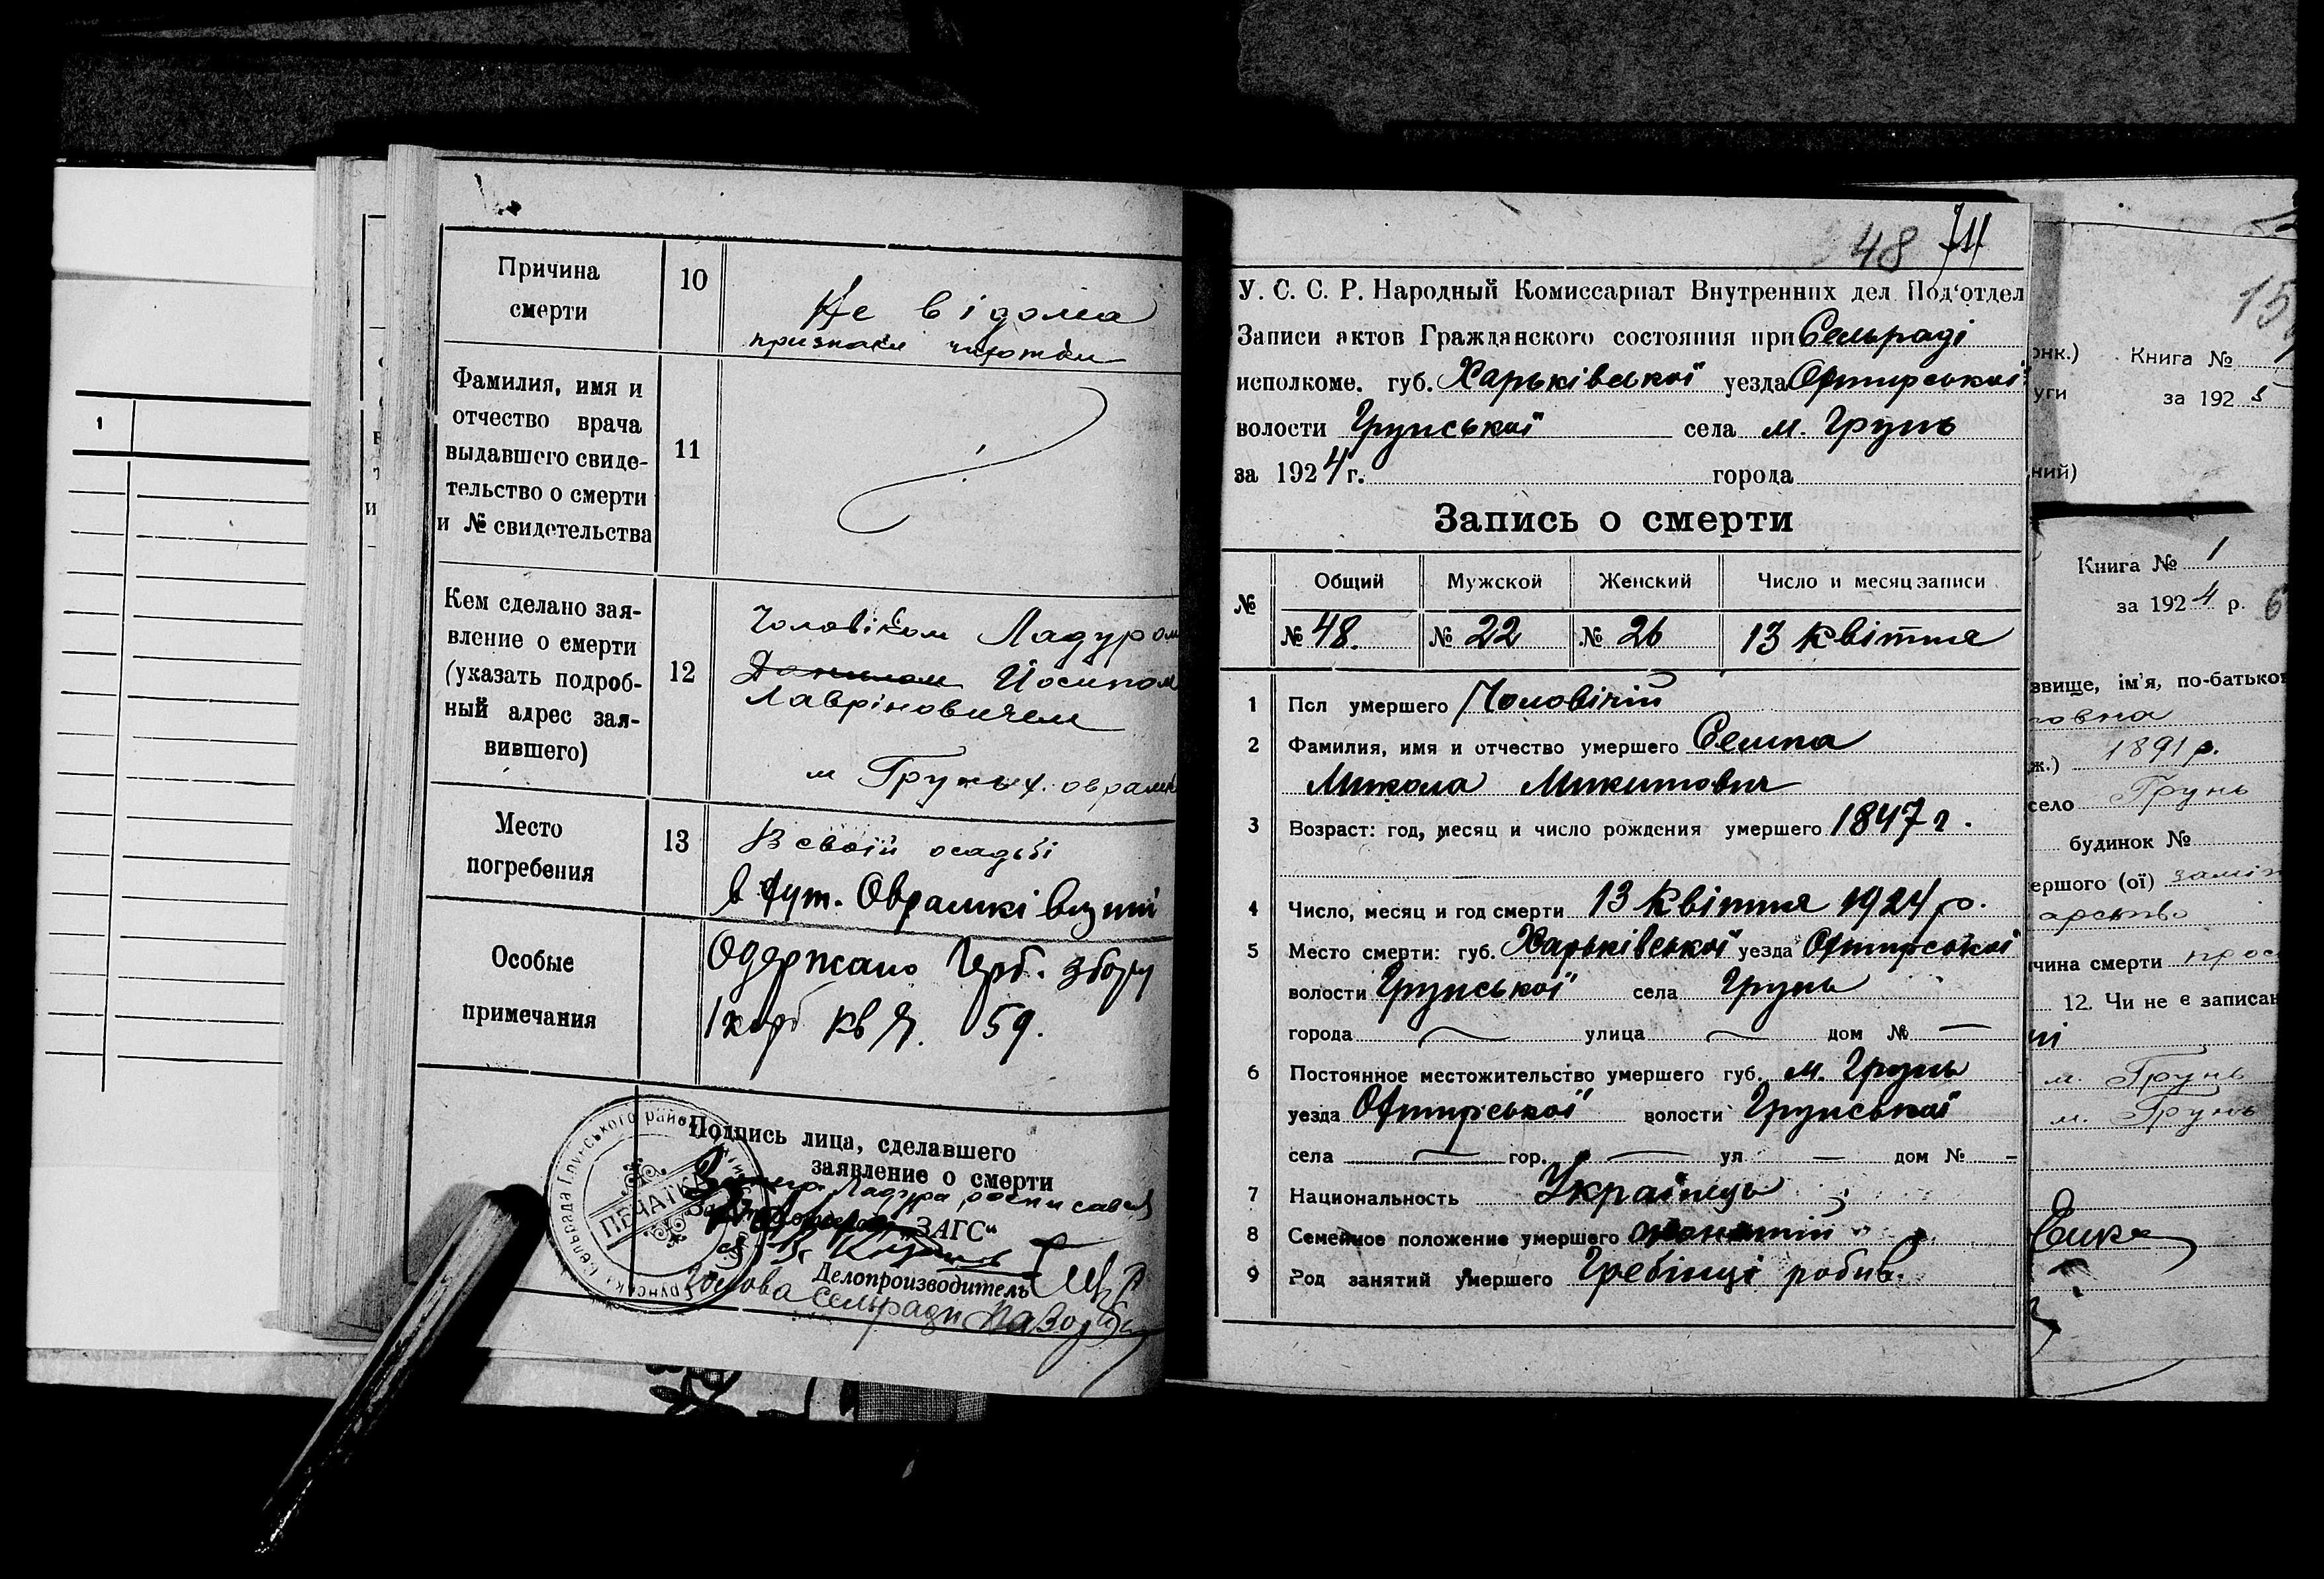 1
Причина
смерти
10
Не відома
признаки чихотки
Фамилия, имя и
отчество врача
выдавшего свиде-
тельство о смерти
и № свидетельства
11
Кем сделано зая-
вление о смерти
(указать подроб-
ный адрес зая-
вившего)
12
Чоловіком Ладуром
Данилом Йосипом
Лавріновичем
м Грунь х. оврамк
Место
погребения
13
В своїй осадьбі
в хут. Оврамкі
Особые
примечания
Одержано Герб. збору
1 карб кв 59.
Подпись лица, сделавшего
заявление о смерти
Ладура росписався
ПЕЧАТКА
„ЗАГС“
Делопроизводитель
Голова сельради
48 71
У. С. С. Р. Народный Комиссариат Внутренних дел Под'отдел
Записи актов Гражданского состояния при Сельраді
исполкоме. губ. Харьківської уезда Охтирської
волости Грунської села м. Грунь
за 1924 г. города
Запись о смерти
№ Общий Мужской Женский Число и месяц записи
№ 48. № 22 № 26 13 квітня
1 Пол умершего Чоловічій
2 Фамилия, имя и отчество умершего Семпа
Микола Микитович
3 Возраст: год, месяц и число рождения умершего 1847 г.
4 Число, месяц и год смерти 13 квітня 1924 р.
5 Место смерти: губ. Харьківської уезда Охтирської
волости Грунської села Грунь
города улица дом № —
6 Постоянное местожительство умершего губ. м. Грунь
уезда Охтирської волости Грунської
села гор. ул — дом № —
7 Национальность Українець
8 Семейное положение умершего
9 Род занятий умершего Гребінці робив.
15
онк.) Книга №
уги за 1925
ний)
Книга № 1
за 1924 р. 6
звище, ім'я, по-батьков
овна
ж.) 1891 р.
село Грунь
будинок №
ершого (ої) заміж
арство
чина смерти
12. Чи не є записан
м. Грунь
м. Грунь